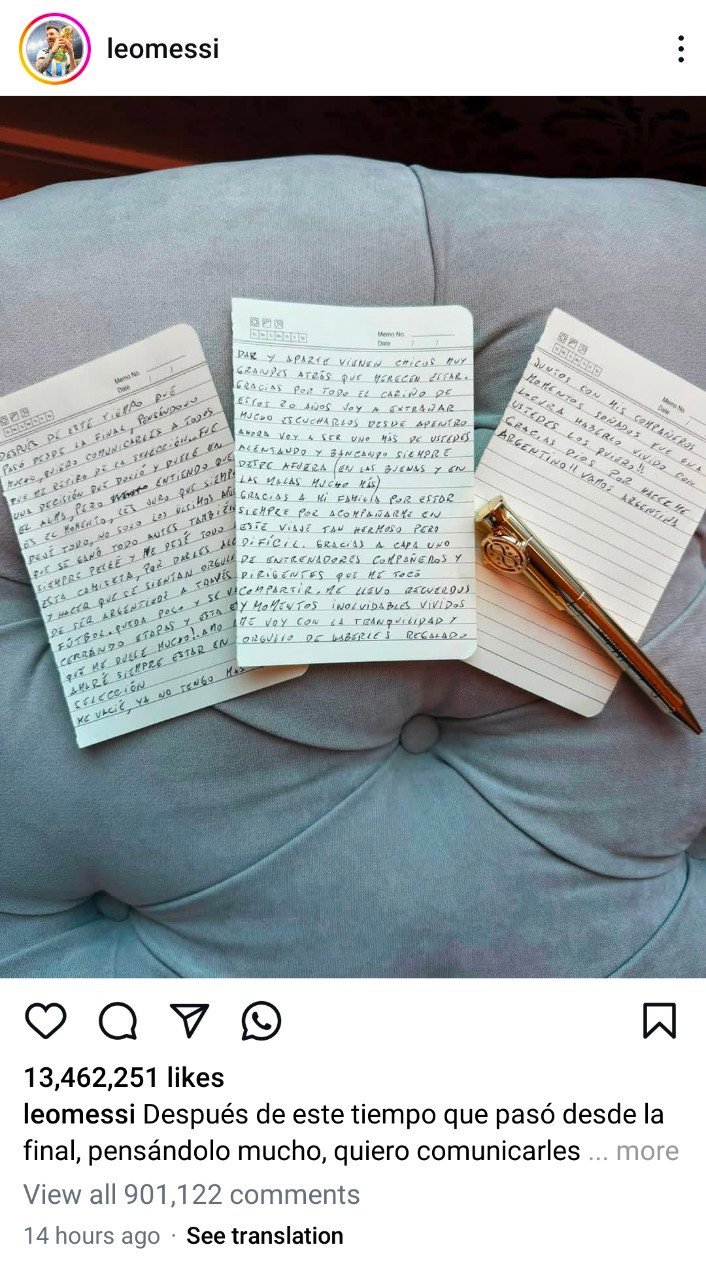 leomessi
Memo No.
Date / /
DESPUÉS DE ESTE TIEMPO QUE
PASÓ DESDE LA FINAL, PENSÁNDOLO
MUCHO, QUIERO COMUNICARLES A TODOS
QUE ME RETIRO DE LA SELECCIÓN. FUE
UNA DECISIÓN QUE DOLIÓ Y DUELE EN
EL ALMA, PERO ENTIENDO QUE
ES EL MOMENTO, LES JURO QUE SIEMP
DEJÉ TODO, NO SOLO LOS ULTIMOS AÑOS
QUE SE GANÓ TODO ANTES TAMBIÉN
SIEMPRE PELEÉ Y ME DEJÉ TODO
ESTA CAMISETA, POR DARLES ALE
Y HACER QUE SE SIENTAN ORGULL
DE SER ARGENTINOS A TRAVÉS
FÚTBOL. QUEDA POCO Y SE VA
CERRANDO ETAPAS Y ESTA ES
QUE ME DUELE MUCHO! AMO
AMARÉ SIEMPRE ESTAR EN
SELECCIÓN
ME VACIÉ, YA NO TENGO MAS
Memo No.
Date / /
DAR Y APARTE VIENEN CHICOS MUY
GRANDES ATRÁS QUE MERECEN ESTAR.
GRACIAS POR TODO EL CARIÑO DE
ESTOS 20 AÑOS VOY A EXTRAÑAR
MUCHO ESCUCHARLOS DESDE ADENTRO
AHORA VOY A SER UNO MÁS DE USTEDES
ALENTANDO Y BANCANDO SIEMPRE
DESDE AFUERA (EN LAS BUENAS Y EN
LAS MALAS MUCHO MÁS)
GRACIAS A MI FAMILIA POR ESTAR
SIEMPRE POR ACOMPAÑARME EN
ESTE VIAJE TAN HERMOSO PERO
DIFÍCIL. GRACIAS A CADA UNO
DE ENTRENADORES COMPAÑEROS Y
DIRIGENTES QUE ME TOCÓ
COMPARTIR. ME LLEVO RECUERDOS
Y MOMENTOS INOLVIDABLES VIVIDOS
ME VOY CON LA TRANQUILIDAD Y
ORGULLO DE HABERLES REGALADO
Memo No.
Date
JUNTOS CON MIS COMPAÑEROS
MOMENTOS SOÑADOS FUE UNA
LOCURA HABERLO VIVIDO CON
USTEDES LOS QUIERO!!
GRACIAS DIOS POR HACERME
ARGENTINO!! VAMOS ARGENTINA
13,462,251 likes
leomessi Después de este tiempo que pasó desde la
final, pensándolo mucho, quiero comunicarles ... more
View all 901,122 comments
14 hours ago · See translation